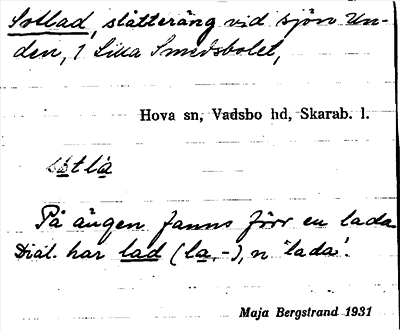 Sotlad, slåtteräng vid sjön Un-
den, 1 Lilla Smedsbolet,
Hova sn, Vadsbo hd, Skarab. l.
På ängen fanns förr en lada
Dial. har lad (la, -), n 'lada'.
Maja Bergstrand 1931